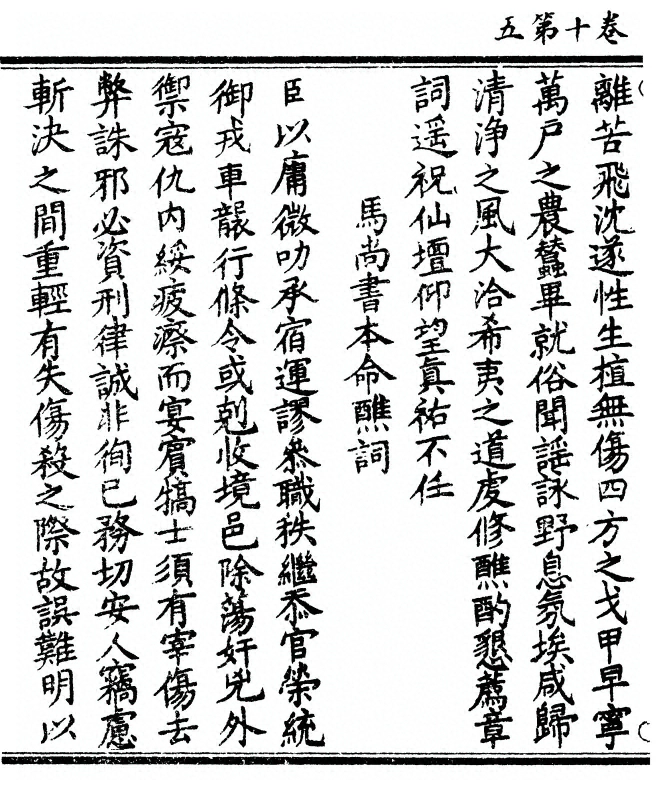 卷十第五
離苦飛沈遂性生植無傷四方之戈甲早寧
萬戸之農蠶畢就俗聞謡詠野息氛埃咸歸
清浄之風大洽希夷之道虔修醮酌懇薦章
詞遥祝仙壇仰望眞祐不任
馬尚書本命醮詞
臣以庸微叨承宿運謬叅職秩繼忝官榮統
御戎車龔行條令或剋收境邑除蕩奸兇外
禦寇仇内綏疲瘵而宴賓犒士須有宰傷去
弊誅邪必資刑律誠非徇已務切安人竊慮
斬決之間重輕有失傷殺之際故誤難明以